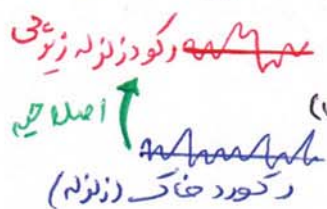 رکورد زلزله زیرسطحی
اصلاحیه
رکورد خاک (زلزله)